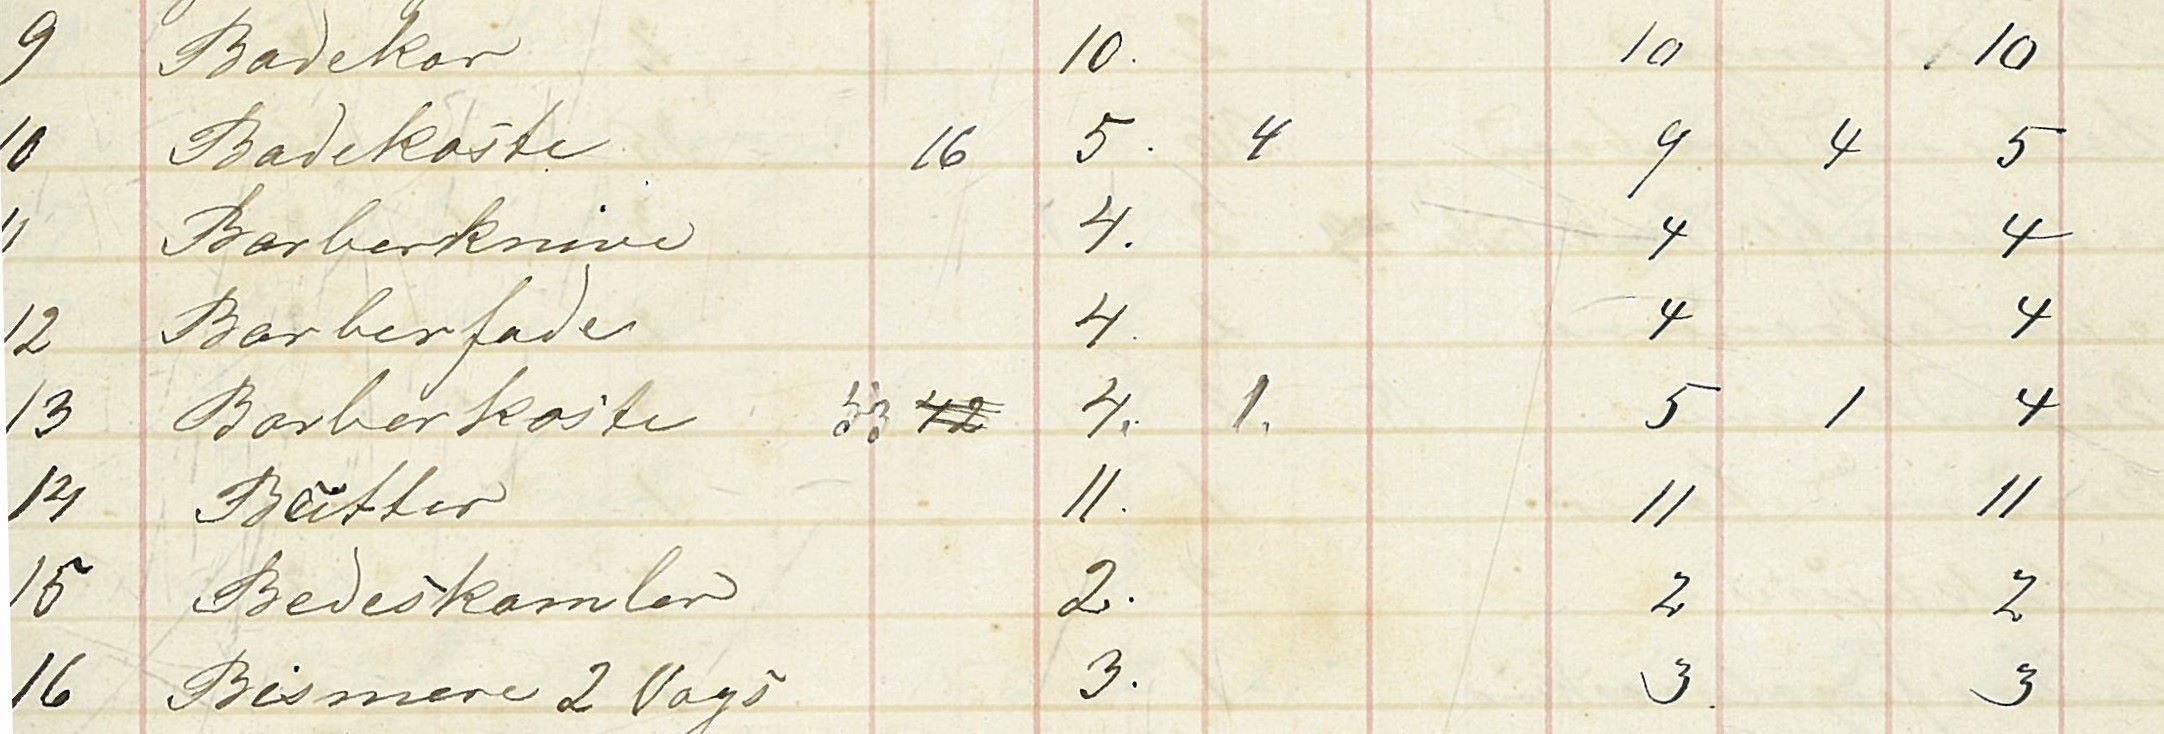 9 Badekar 10. 10 10
10 Badekoste 16 5. 4 9 4 5
11 Barberknive 4. 4 4
12 Barberfade 4. 4 4
13 Barberkoste 33 42 4. 1. 5 1 4
14 Bøtter 11. 11 11
15 Bedeskamler 2. 2 2
16 Bismere 2 Vogs 3. 3 3